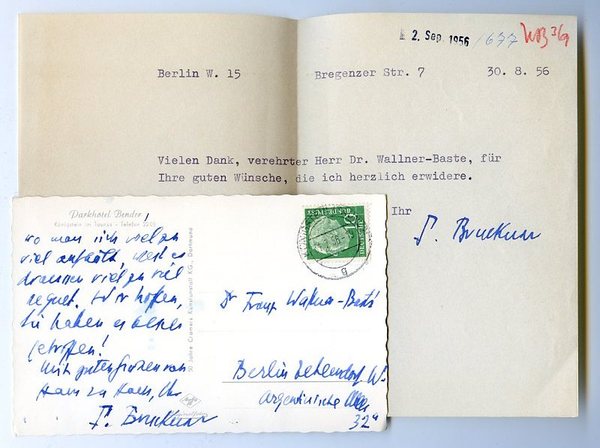 2. Sep. 1956
1677
Berlin W. 15 Bregenzer Str. 7 30. 8. 56
Vielen Dank, verehrter Herr Dr. Wallner-Baste, für
Ihre guten Wünsche, die ich herzlich erwidere.
Ihr
F. Bruckner
Parkhotel Bender
Königstein im Taunus - Telefon
wo man sich viel zu
viel aufhält, weil es
draussen viel zu viel
regnet. Wir hoffen,
Sie haben es besser
getroffen!
Mit guten Grüssen von
Haus zu Haus, Ihr
F. Bruckner
50 Jahre Cramers Kunstanstalt KG, Dortmund
DEUTSCHE BUNDESPOST
Dr Franz Wallner-Basté
Berlin Zehlendorf W.
Argentinische Allee
32a